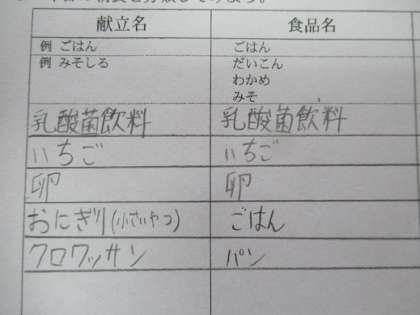 献立名 食品名
例 ごはん ごはん
例 みそしる だいこん
わかめ
みそ
乳酸菌飲料 乳酸菌飲料
いちご いちご
卵 卵
おにぎり(小さいやつ) ごはん
クロワッサン パン